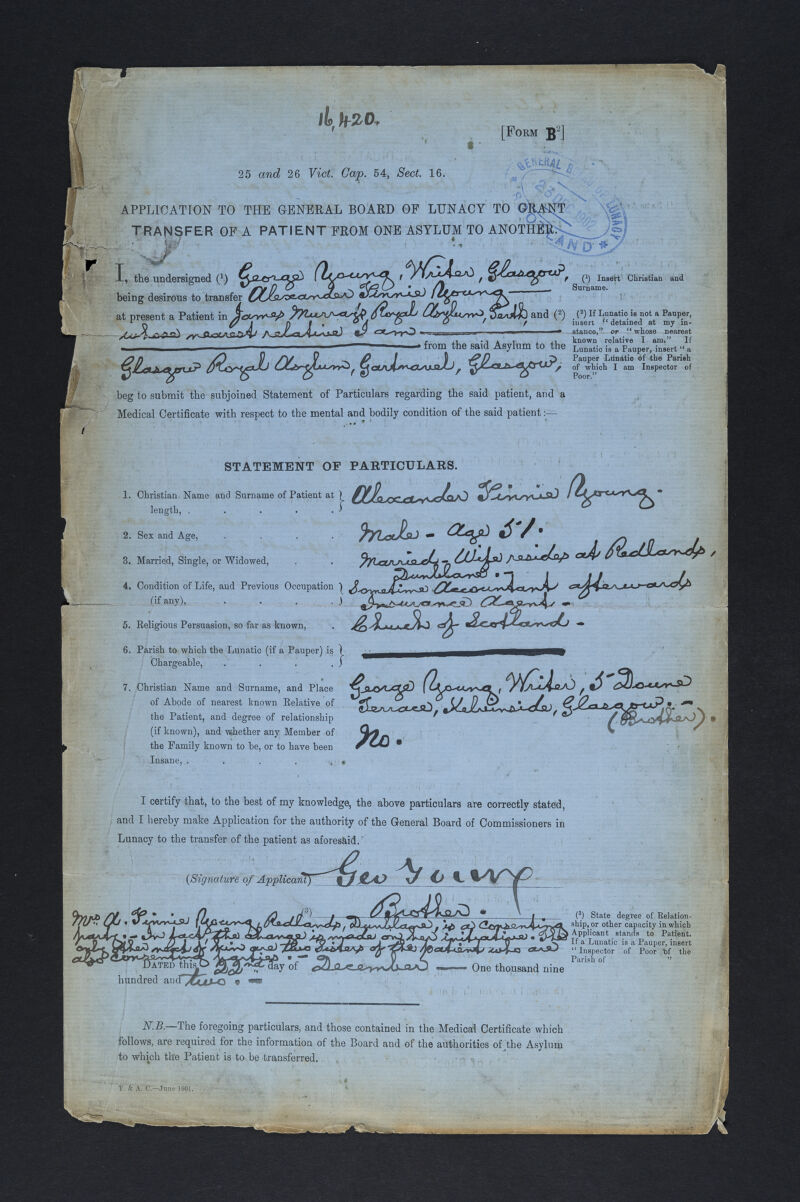 16,420.
[FORM B²]
GENERAL BOARD OF LUNACY
23 DEC 1902
SCOTLAND
25 and 26 Vict. Cap. 54, Sect. 16.
APPLICATION TO THE GENERAL BOARD OF LUNACY TO GRANT
TRANSFER OF A PATIENT FROM ONE ASYLUM TO ANOTHER.
I, the undersigned (¹) George Young, Writer, Glasgow,
being desirous to transfer Alexander Finnie Young
at present a Patient in James Murray's Royal Asylum, Perth, and (²)
whose nearest relative I am
from the said Asylum to the
Glasgow Royal Asylum, Gartnavel, Glasgow,
beg to submit the subjoined Statement of Particulars regarding the said patient, and a
Medical Certificate with respect to the mental and bodily condition of the said patient:—
(¹) Insert Christian and
Surname.
(²) If Lunatic is not a Pauper,
insert "detained at my in-
stance," or "whose nearest
known relative I am." If
Lunatic is a Pauper, insert "a
Pauper Lunatic of the Parish
of which I am Inspector of
Poor."
STATEMENT OF PARTICULARS.
1. Christian Name and Surname of Patient at
length, . . . . . Alexander Finnie Young.
2. Sex and Age, . . . Male - Age 51.
3. Married, Single, or Widowed, . . Married, - Wife resides at Redlands,
Dunblane. -
4. Condition of Life, and Previous Occupation Sometime Accountant afterwards
(if any), . . . . . Insurance Agent -
5. Religious Persuasion, so far as known, . Church of Scotland -
6. Parish to which the Lunatic (if a Pauper) is
Chargeable, . . . .
7. Christian Name and Surname, and Place George Young, Writer, 5 Doune
of Abode of nearest known Relative of Terrace, Kelvinside, Glasgow. -
the Patient, and degree of relationship (Brother).
(if known), and whether any Member of No.
the Family known to be, or to have been
Insane, . . . . .
I certify that, to the best of my knowledge, the above particulars are correctly stated,
and I hereby make Application for the authority of the General Board of Commissioners in
Lunacy to the transfer of the patient as aforesaid.
(Signature of Applicant) Geo Young
(³) Brother.
Mrs A. Finnie Young, Redlands, Dunblane, is a consenting
party. - In fact the change is made on her initiative. The
only other next of kin are two sisters of the patient who are
also consenting parties. -
DATED this 22nd day of December One thousand nine
hundred and two. -
(³) State degree of Relation-
ship, or other capacity in which
Applicant stands to Patient.
If a Lunatic is a Pauper, insert
"Inspector of Poor of the
Parish of "
N.B.—The foregoing particulars, and those contained in the Medical Certificate which
follows, are required for the information of the Board and of the authorities of the Asylum
to which the Patient is to be transferred.
T. & A. C.—June 1901.